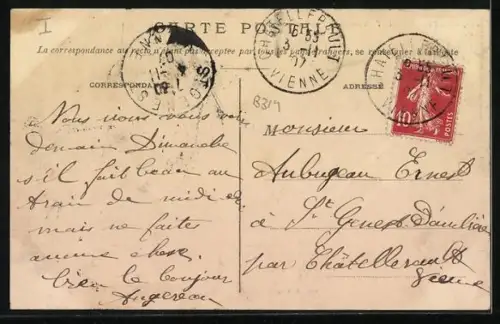 CARTE POSTALE
La correspondance au recto n'étant pas acceptée par tous les pays étrangers, se renseigner à la Poste
CORRESPONDANCE
ADRESSE
CHATELLERAULT
VIENNE
10
POSTES
B319
I
Nous irons vous voir
demain Dimanche
s'il fait beau au
train de midi
mais ne faites
aucune chose
bien le bonjour
Augereau
Monsieur
Aubugeau Ernest
à St Genest d'Ambière
par Châtellerault
Vienne